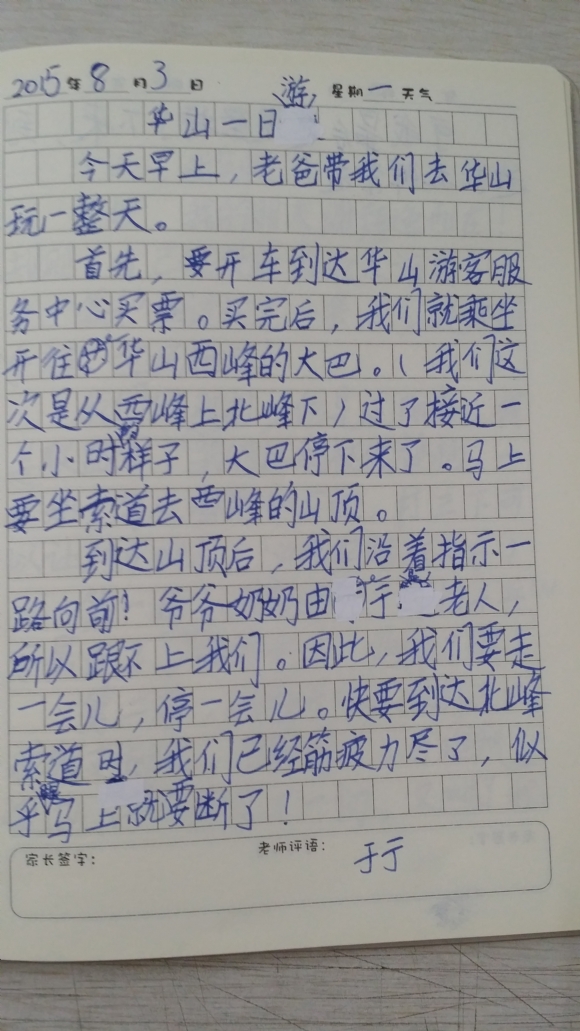 2015年8月3日 星期一 天气
华山一日游
今天早上，老爸带我们去华山
玩一整天。
首先，要开车到达华山游客服
务中心买票。买完后，我们就乘坐
开往华山西峰的大巴。（我们这
次是从西峰上北峰下）过了接近一
个小时样子，大巴停下来了。马上
要坐索道去西峰的山顶。
到达山顶后，我们沿着指示一
路向前！爷爷奶奶由于 老人，
所以跟不上我们。因此，我们要走
一会儿，停一会儿。快要到达北峰
索道时，我们已经筋疲力尽了，似
乎腿马上就要断了！
家长签字： 老师评语：